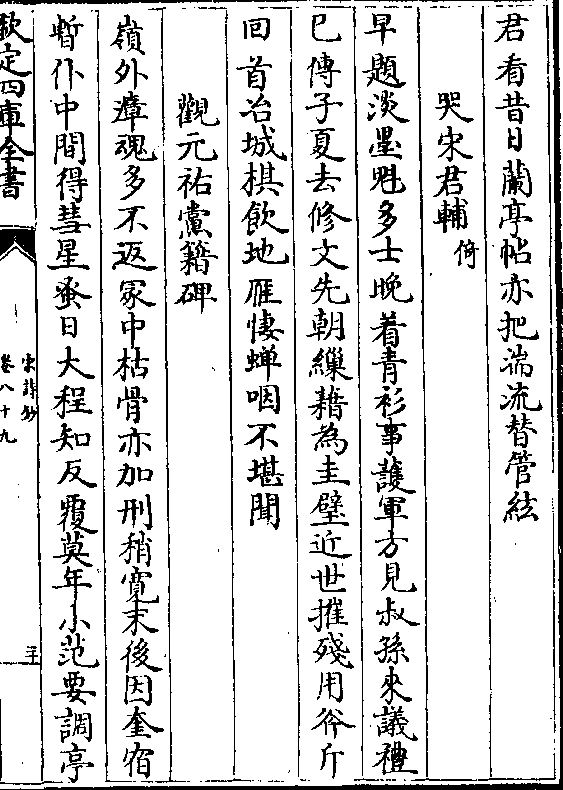 君看昔日蘭亭帖亦把湍流替管絃
哭宋君輔 倚
早題淡墨魁多士晚着青衫事護軍方見叔孫來議禮
已傳子夏去修文先朝繅藉為圭璧近世摧殘用斧斤
回首冶城棋飲地雁悽蟬咽不堪聞
觀元祐黨籍碑
嶺外瘴魂多不返冢中枯骨亦加刑稍寛末後因奎宿
暫仆中間得彗星蚤日大程知反覆莫年小范要調亭
欽定四庫全書
宋詩鈔
卷八十九